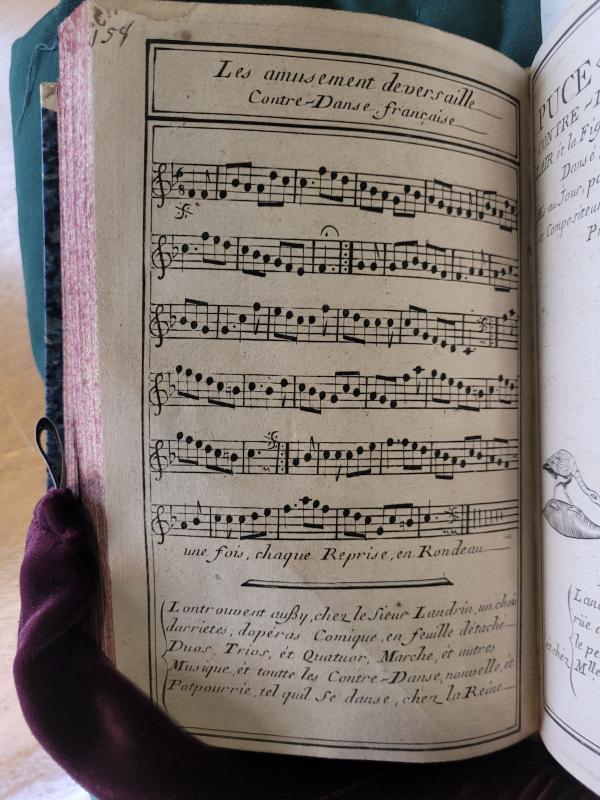 154
Les amusement deversaille
Contre-Danse, française
une fois, chaque Reprise, en Rondeau
Lontrouvent außy, chez le Sieur Landrin, un choix
darrietes, dopéras Comique, en feuille détaché
Duos, Trios, ét Quatuor, Marche, ét autres
Musique, ét toutte les Contre-Danse, nouvelle, ét
Potpourrie, tel quil se danse, chez la Reine
PUCE
CONTRE-D
AIR ét la Fig
Danse
Mis au Jour, pa
ét Compositeur
Land
rüe
le pe
et chéz Mlle